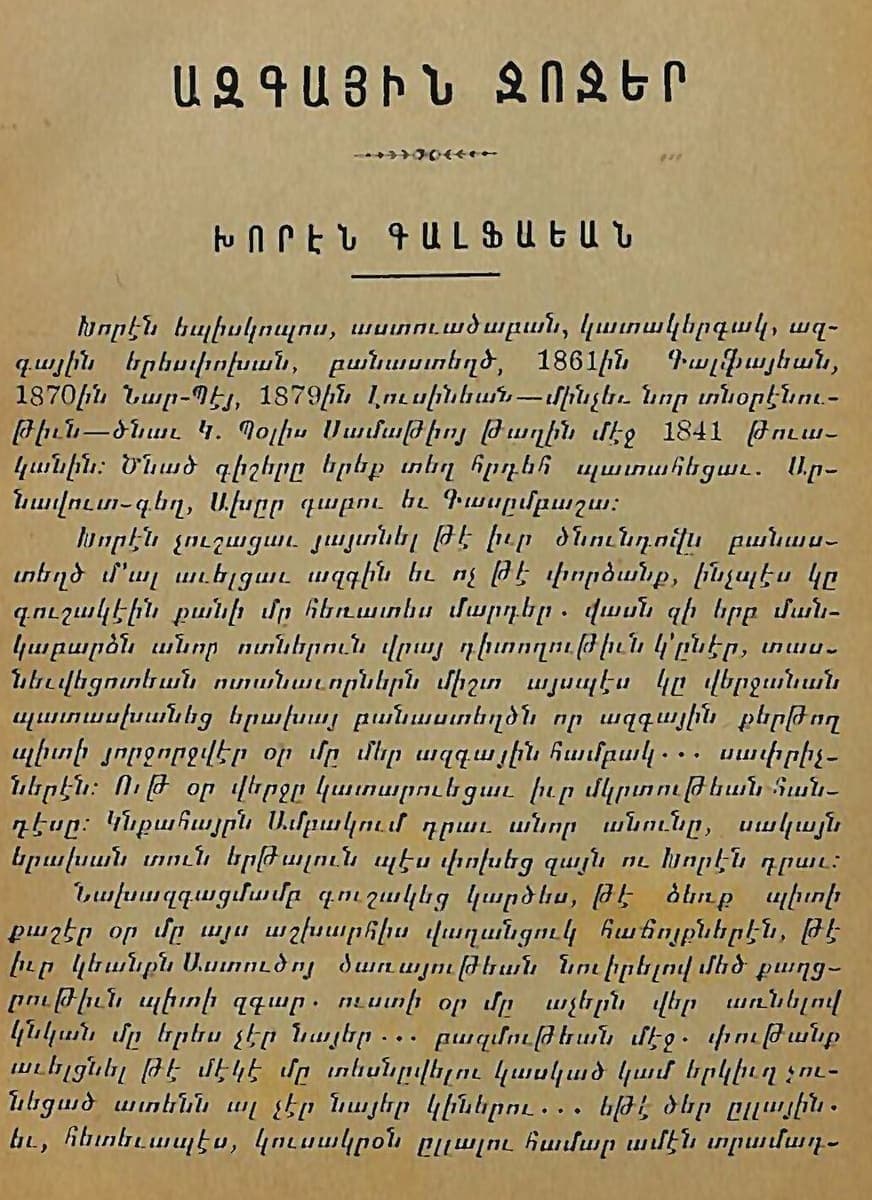 ԱԶԳԱՅԻՆ ՋՈՋԵՐ
ԽՈՐԷՆ ԳԱԼՖԱԵԱՆ
Խորէն եպիսկոպոս, աստուածաբան, կատակերգակ, ազ-
գային երեսփոխան, բանաստեղծ, 1861ին Գալֆայեան,
1870ին Նար-Պէյ, 1879ին Լուսինեան—մինչեւ նոր տնօրէնու-
թիւն—ծնաւ Կ. Պօլիս Սամաթիոյ թաղին մէջ 1841 թուա-
կանին։ Ծնած գիշերը երեք տեղ հրդեհ պատահեցաւ. Ար-
նավուտ-գեղ, Ախըր գաբու եւ Գասըմբաշա։
Խորէն չուշացաւ յայտնել թէ իւր ծնունդովն բանաս-
տեղծ մ'ալ աւելցաւ ազգին եւ ոչ թէ փորձանք, ինչպէս կը
գուշակէին քանի մը հեռատես մարդեր. վասն զի երբ ման-
կաբարձն անոր ոտներուն վրայ դիտողութիւն կ'ընէր, տաս-
նեւվեցոտեան ոտանաւորներն միշտ այսպէս կը վերջանան
պատասխանեց երախայ բանաստեղծն որ ազգային քերթող
պիտի յորջորջվէր օր մը մեր ազգային համբակ... սափրիչ-
ներէն։ Ութ օր վերջը կատարուեցաւ իւր մկրտութեան հան-
դէսը։ Կնքահայրն Ամբակում դրաւ անոր անունը, սակայն
երախան տուն երթալուն պէս փոխեց զայն ու Խորէն դրաւ։
Նախազգացմամբ գուշակեց կարծես, թէ ձեռք պիտի
քաշէր օր մը այս աշխարհիս վաղանցուկ հաճոյքներէն, թէ
իւր կեանքն Աստուծոյ ծառայութեան նուիրելով մեծ քաղց-
րութիւն պիտի զգար. ուստի օր մը աչերն վեր առնելով
կնկան մը երես չէր նայեր... բազմութեան մէջ. փութանք
աւելցնել թէ մէկէ մը տեսնըվելու կասկած կամ երկիւղ չու-
նեցած ատենն ալ չէր նայեր կիներու... եթէ ծեր ըլլային.
եւ, հետեւապէս, կուսակրօն ըլլալու համար ամէն տրամադ-